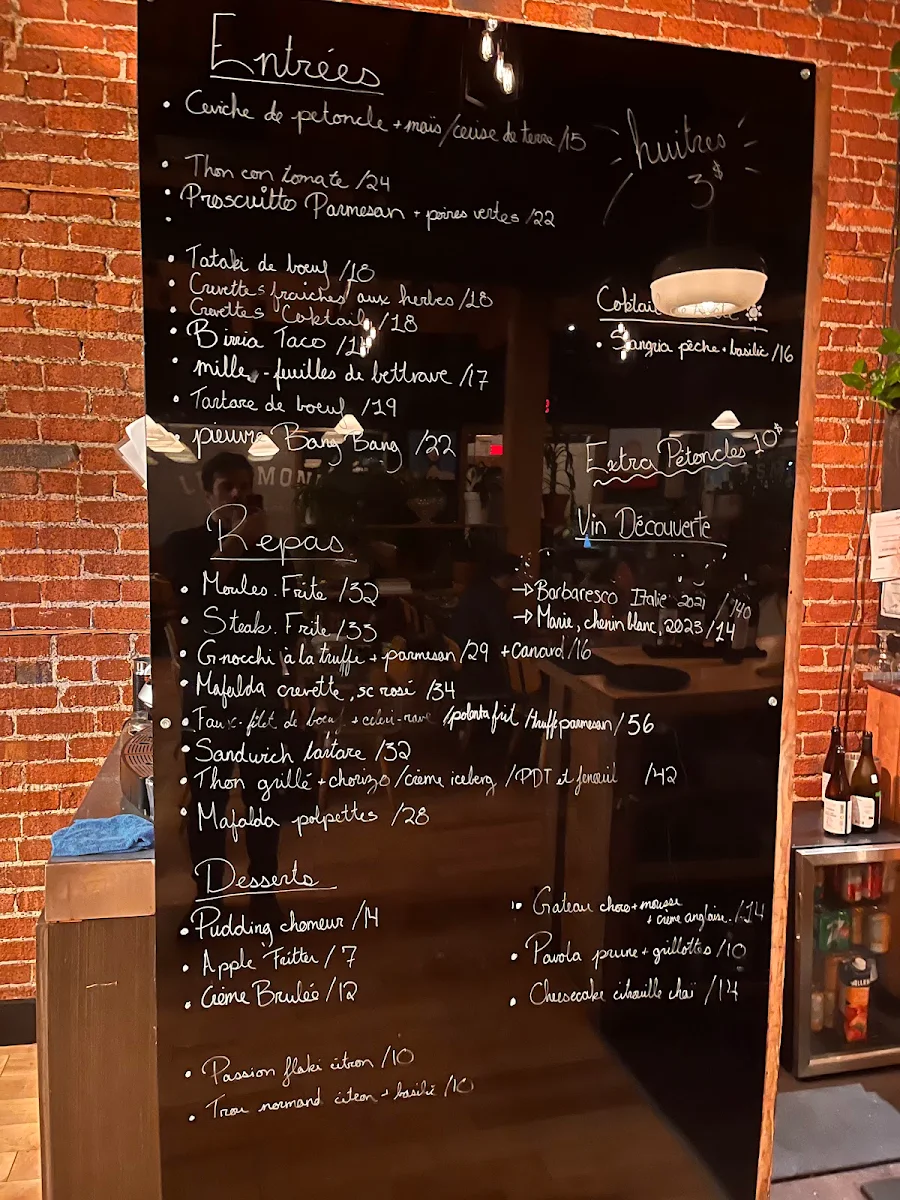 Entrées
• Ceviche de petoncle + maïs / cerise de terre / 15
• Thon con tomate / 24
• Proscuitto Parmesan + poires vertes / 22
•
• Tataki de boeuf / 18
• Crevettes fraiches aux herbes / 28
• Crevettes Coktail / 18
• Birria Taco
• mille - feuilles de bettrave / 17
• Tartare de boeuf / 19
• pieuvre Bang Bang / 22
huitres
3$
Coktail
• Sangria pêche + basilic / 16
Extra Pétoncles 10$
Repas
• Moules. Frite / 32
• Steak. Frite / 35
• Gnocchi à la truffe + parmesan / 29 + canard / 16
• Mafalda crevette, sc rosé / 34
• Faux-filet de boeuf + céleri-rave / polenta frit / truffe parmesan / 56
• Sandwich tartare / 32
• Thon grillé + chorizo / crème iceberg / PDT et fenouil / 42
• Mafalda polpettes / 28
Vin Découverte
→ Barbaresco Italie 2021 / 140
→ Marie, chenin blanc, 2023 / 14
Desserts
• Pudding chomeur / 14
• Apple Fritter / 7
• Crème Brulée / 12
• Passion flaki citron / 10
• Trou normand citron + basilic / 10
• Gateau choco + mousse
+ crème anglaise. / 14
• Pavola prune + grillottes / 10
• Cheesecake citrouille chaï / 14